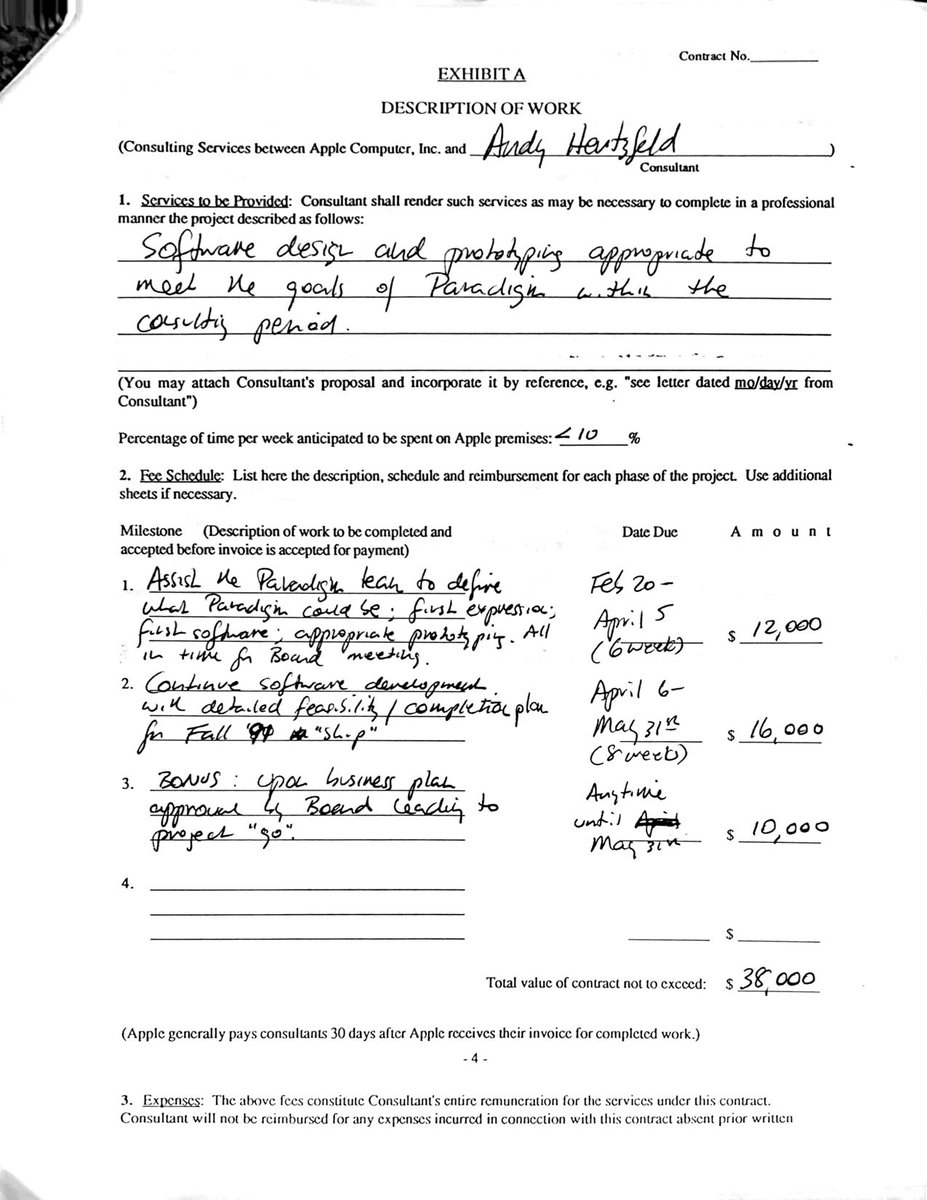 Contract No.
EXHIBIT A
DESCRIPTION OF WORK
(Consulting Services between Apple Computer, Inc. and Andy Hertzfeld )
Consultant
1. Services to be Provided: Consultant shall render such services as may be necessary to complete in a professional
manner the project described as follows:
Software design and prototyping appropriate to
meet the goals of Paradigm within the
consulting period.
(You may attach Consultant's proposal and incorporate it by reference, e.g. "see letter dated mo/day/yr from
Consultant")
Percentage of time per week anticipated to be spent on Apple premises: <10 %
2. Fee Schedule: List here the description, schedule and reimbursement for each phase of the project. Use additional
sheets if necessary.
Milestone (Description of work to be completed and
accepted before invoice is accepted for payment)
Date Due
Amount
1. Assist the Paradigm team to define
what Paradigm could be; first expression;
first software; appropriate prototyping. All
in time for Board meeting.
Feb 20 -
April 5
(6 weeks)
$ 12,000
2. Continue software development
with detailed feasibility / completion plan
for Fall "ship"
April 6 -
May 31st
(8 weeks)
$ 16,000
3. BONUS: Upon business plan
approval by Board leading to
project "go".
Anytime
until April
May 31st
$ 10,000
4.
$
Total value of contract not to exceed: $ 38,000
(Apple generally pays consultants 30 days after Apple receives their invoice for completed work.)
- 4 -
3. Expenses: The above fees constitute Consultant's entire remuneration for the services under this contract.
Consultant will not be reimbursed for any expenses incurred in connection with this contract absent prior written